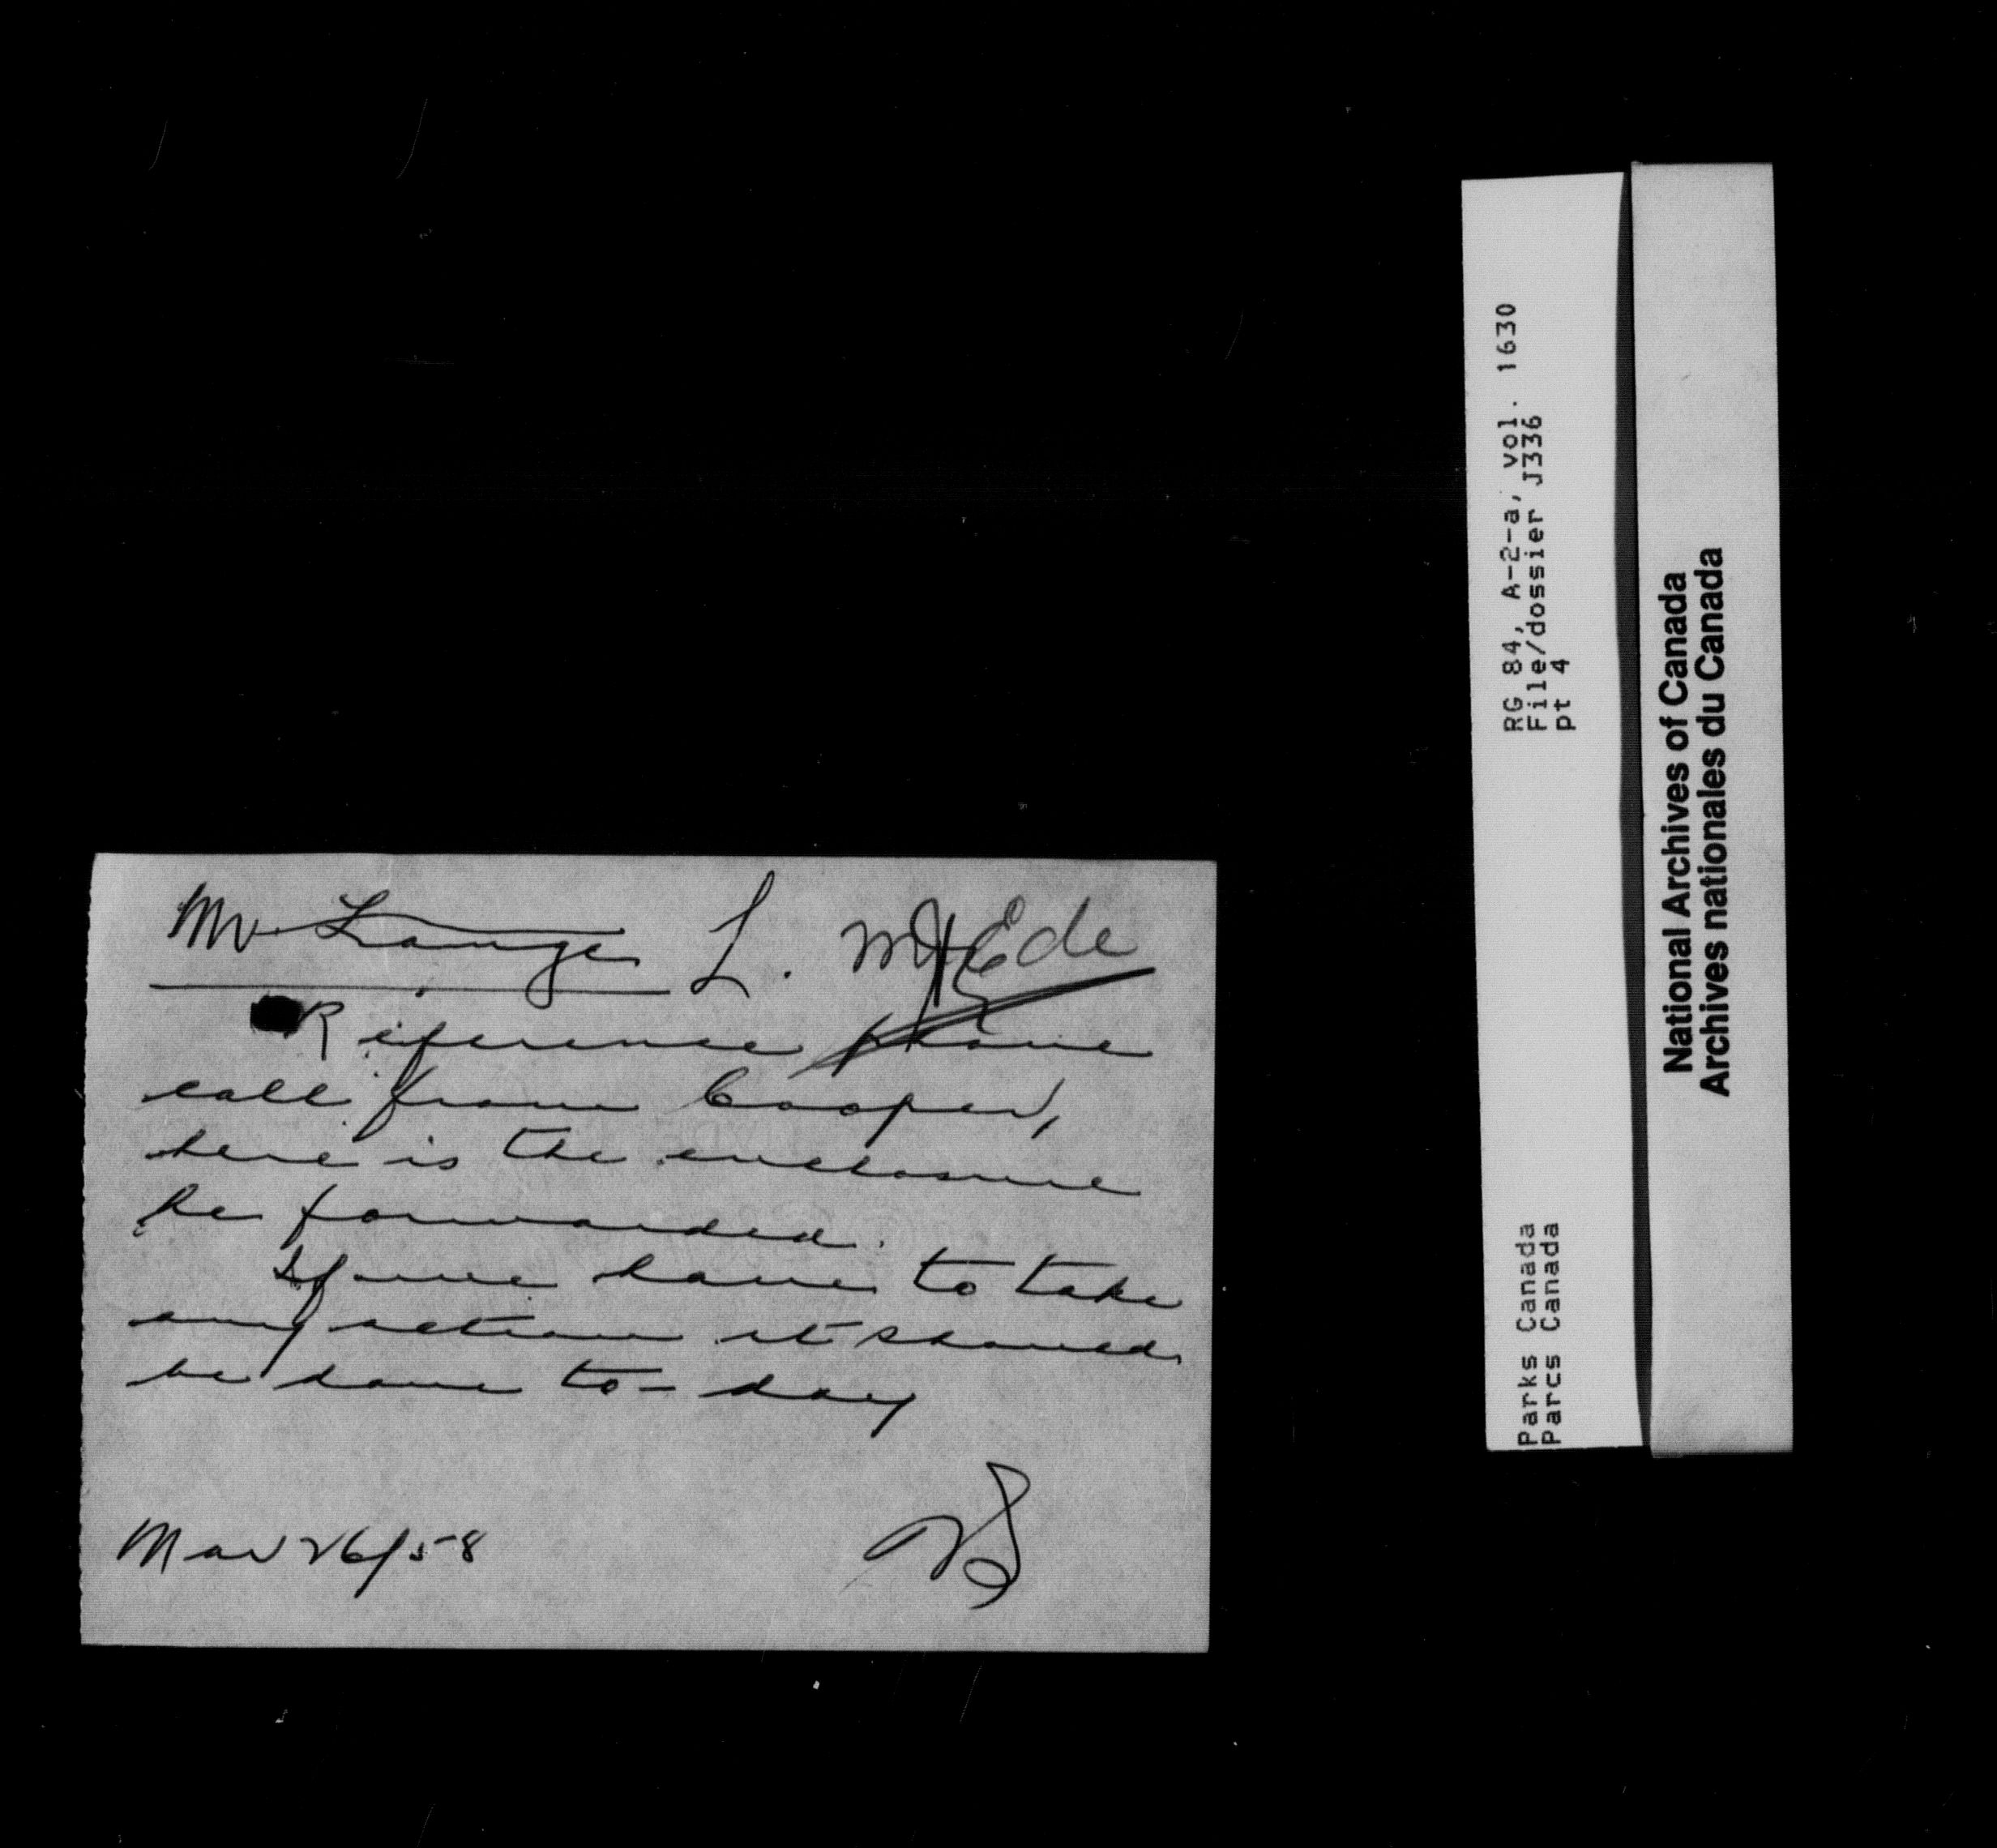 Mr. Lange L. Mr Ede
Reference phone
call from Cooper,
here is the enclosure
he forwarded.
If we have to take
any action it should
be done to-day
Mar 26/58
RG 84, A-2-a, vol. 1630
File/dossier J336
pt 4
Parks Canada
Parcs Canada
National Archives of Canada
Archives nationales du Canada